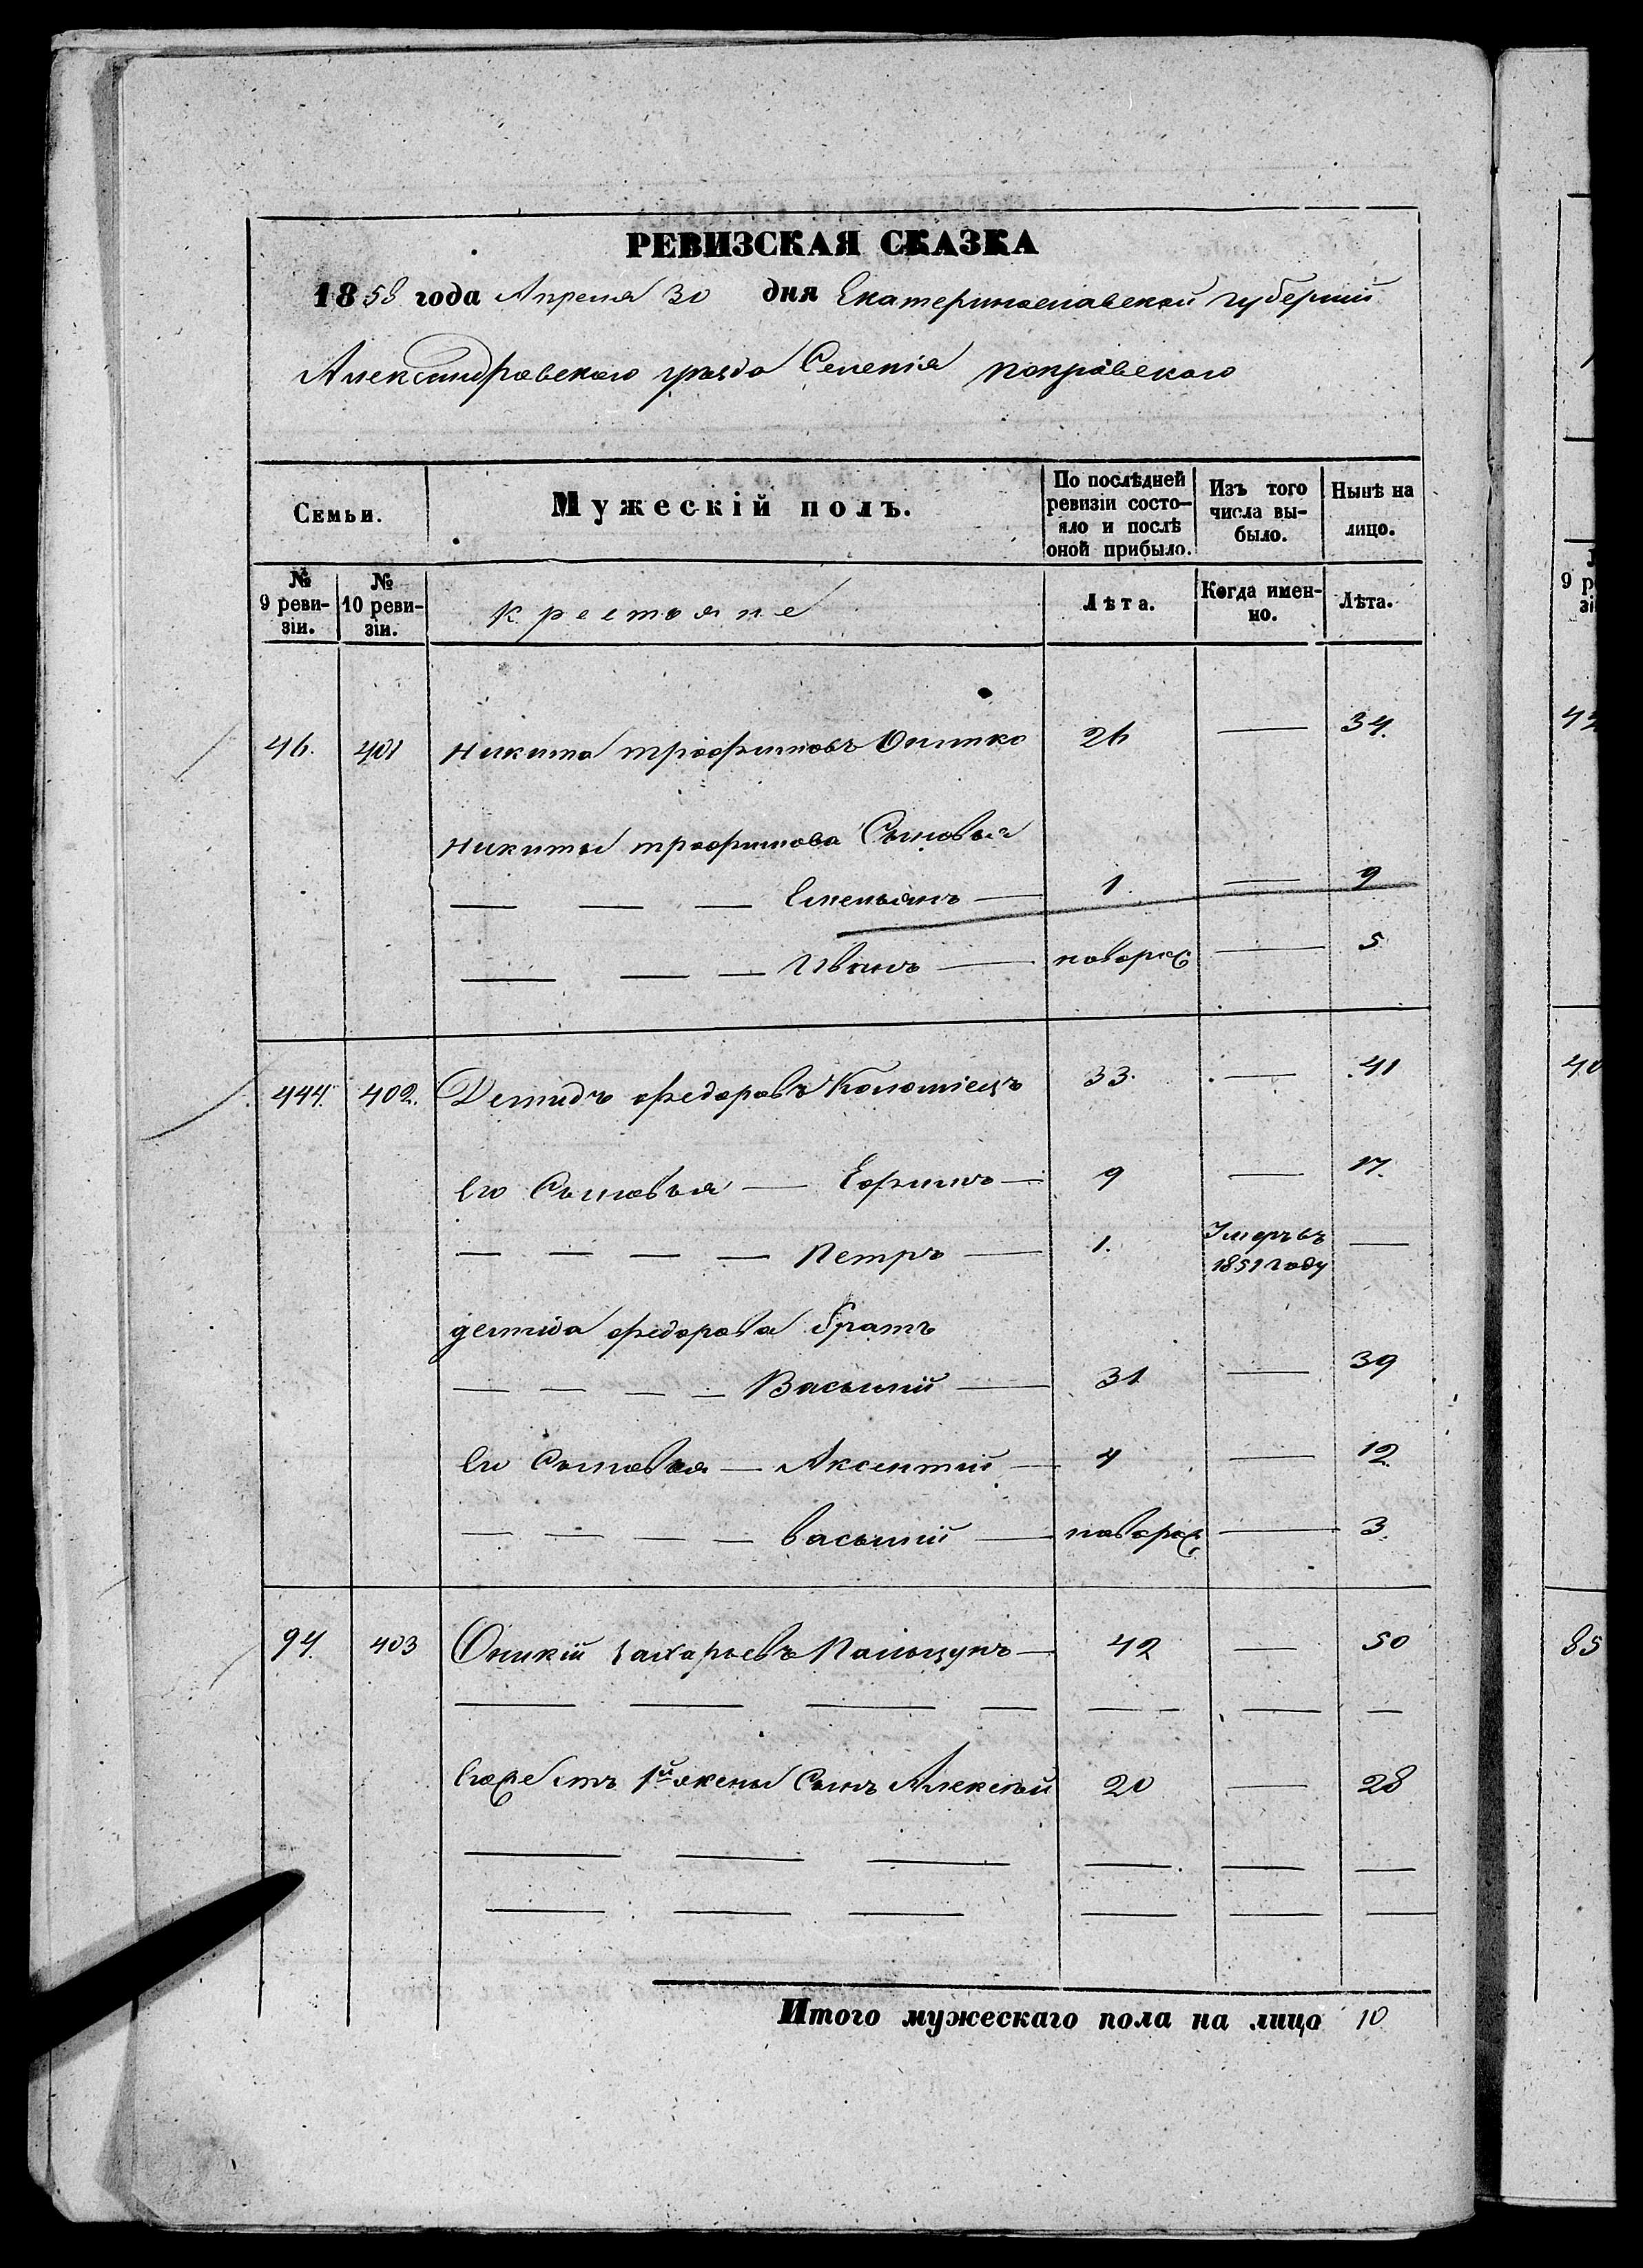 РЕВИЗСКАЯ СКАЗКА
1858 года Апреля 30 дня Екатеринославской губернии
Александровского уезда Селенія покровского
Семьи.
Мужескій полъ.
По послѣдней ревизіи состо-яло и послѣ оной прибыло.
Изъ того числа вы-было.
Нынѣ на лицо.
№ 9 реви-зіи.
№ 10 реви-зіи.
крестьяне
Лѣта.
Когда имен-но.
Лѣта.
46. 401 Никита трофимовъ 26 — 34.
Никиты трофимова Сыновья
— — — Емельянъ — 1. — 9
— — — Иванъ — новорож — 5
444. 402. Демидъ федоровъ Коломіецъ 33. — 41
Его Сыновья — Ефимъ — 9 — 17.
— — — — Петръ — 1. Умеръ въ 1851 году —
демида федорова братъ
— — — — Василий — 31 — 39
Его Сыновья — Аксентий — 4 — 12
— — — — василий — новорож — 3.
94. 403 Оникій захарьевъ — 42 — 50
— — — — — — —
Егоже отъ 1й жены Сынъ Алексѣй 20 — 28
— — — — — —
— — — — — —
Итого мужескаго пола на лицо 10
9 р
зі
42
40
85